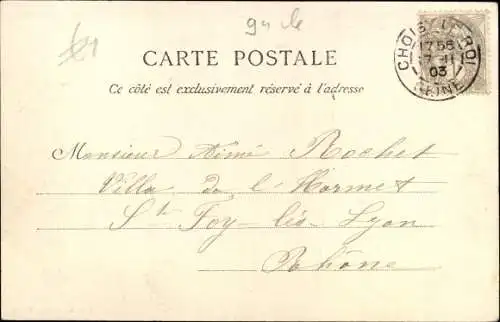 CARTE POSTALE
Ce côté est exclusivement réservé à l'adresse
CHOISY LE ROI
17 11
03
SEINE
Monsieur Aimé Rochet
Villa de l'Hormet
Ste Foy-lès-Lyon
Rhône